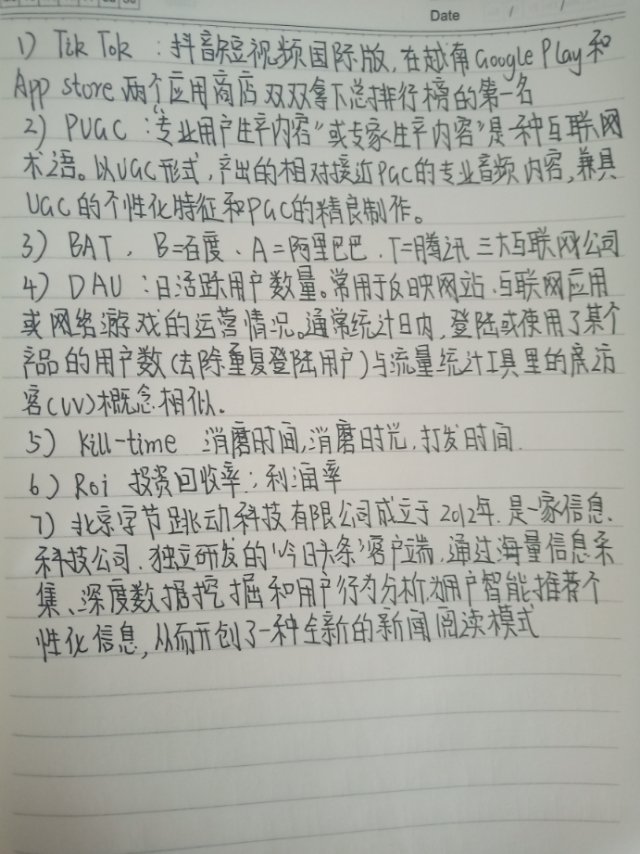 Date / /
1) Tik Tok ：抖音短视频国际版，在越南Google Play和
App store 两个应用商店双双拿下总排行榜的第一名
2) PUGC：“专业用户生产内容”或专家生产内容”是一种互联网
术语。以UGC形式，产出的相对接近PGC的专业音频内容，兼具
UGC的个性化特征和PGC的精良制作。
3) BAT，B=百度、A=阿里巴巴、T=腾讯 三大互联网公司
4) DAU ：日活跃用户数量。常用于反映网站、互联网应用
或网络游戏的运营情况。通常统计日内，登陆或使用了某个
产品的用户数(去除重复登陆用户)与流量统计工具里的访
客(UV)概念相似。
5) Kill-time 消磨时间，消磨时光，打发时间.
6) Roi 投资回收率；利润率
7) 北京字节跳动科技有限公司成立于2012年.是一家信息
科技公司.独立研发的‘今日头条’客户端，通过海量信息采
集、深度数据挖掘和用户行为分析,为用户智能推荐个
性化信息，从而开创了一种全新的新闻阅读模式